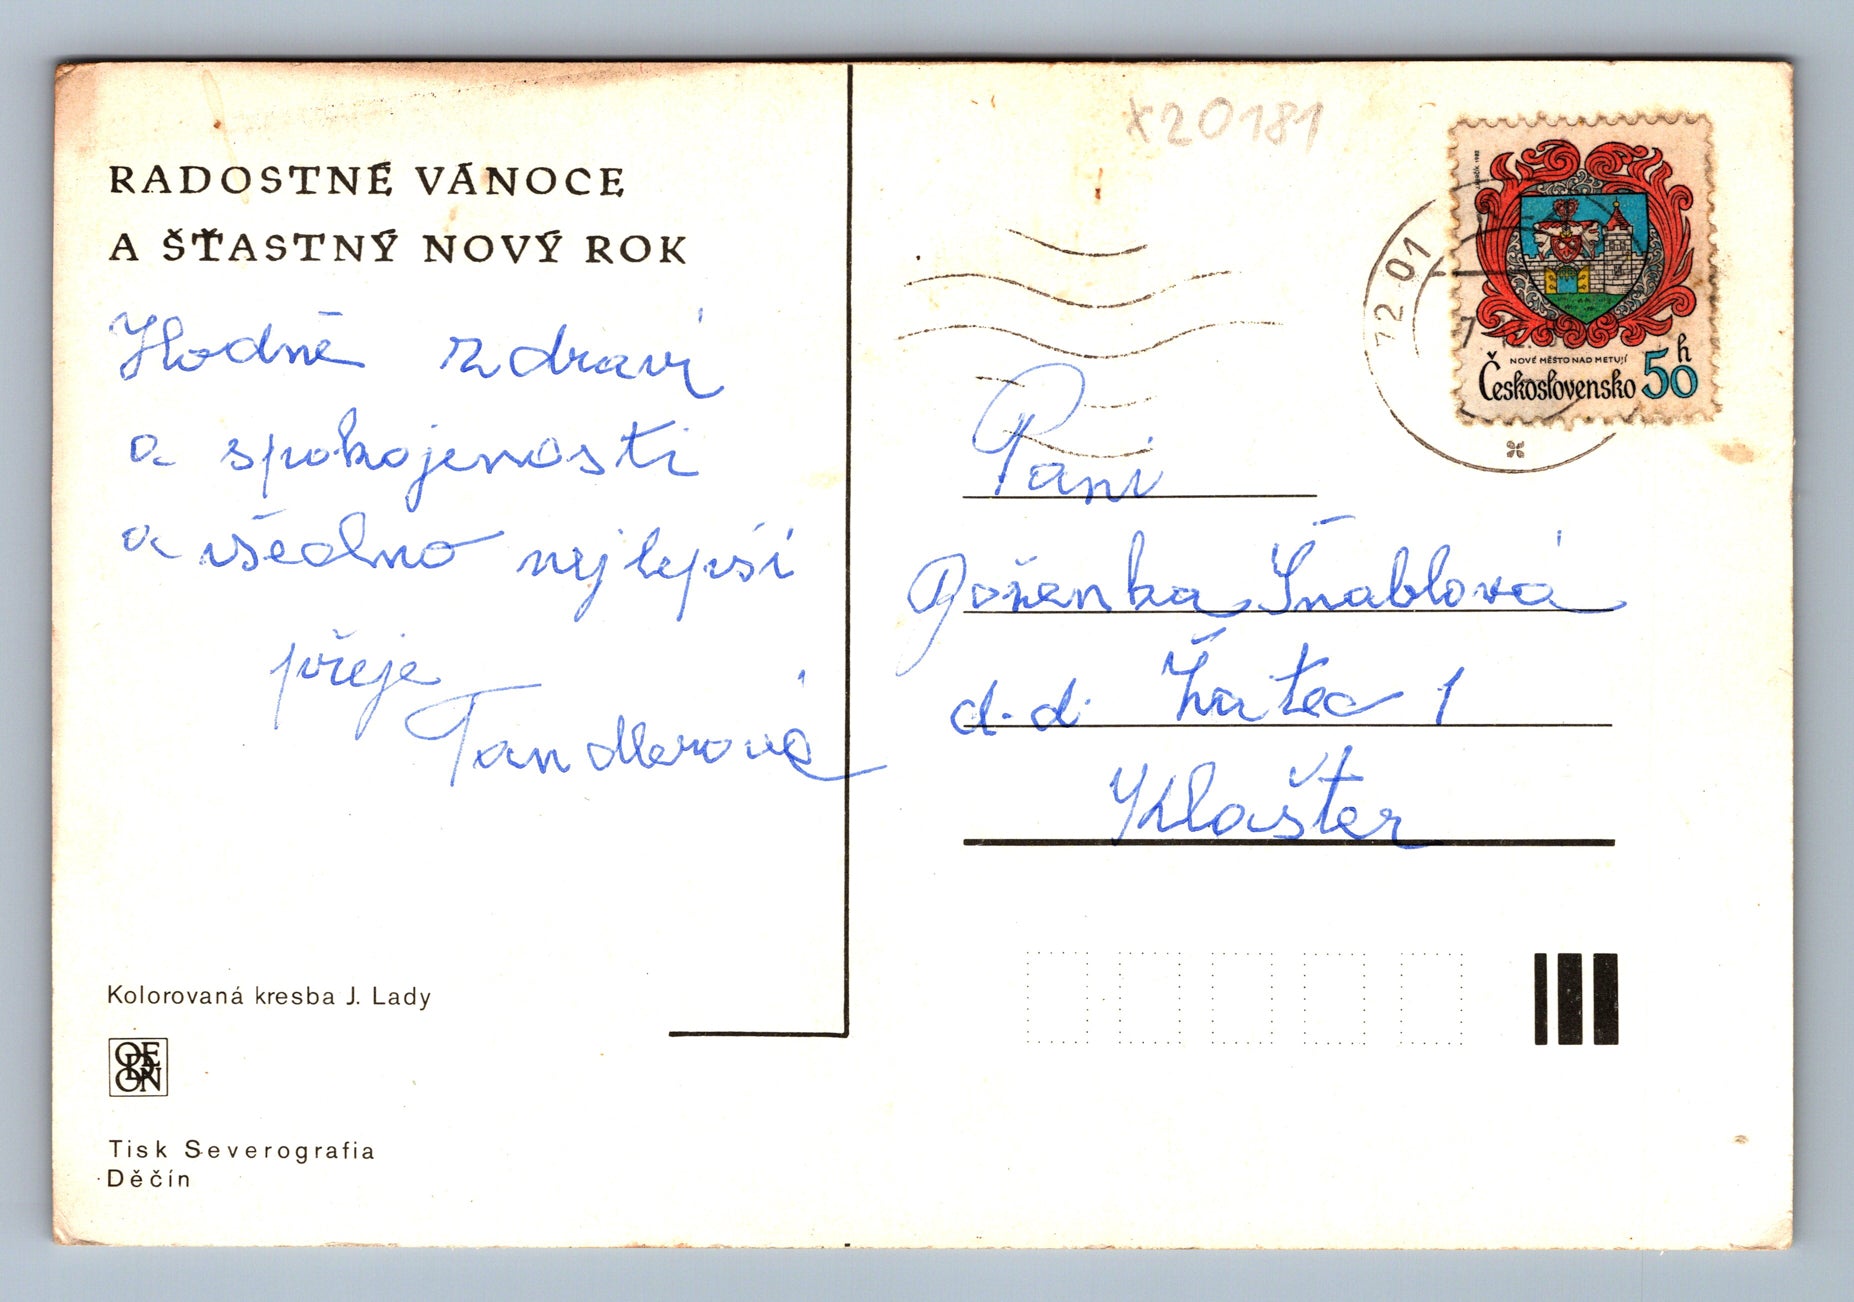 RADOSTNÉ VÁNOCE
A ŠŤASTNÝ NOVÝ ROK
Hodně zdraví
a spokojenosti
a všedno nejlepší
přeje
Tandlerová
Kolorovaná kresba J. Lady
ODEON
Tisk Severografia
Děčín
x20181
72 01
7
NOVÉ MĚSTO NAD METUJÍ
Československo 50 h
Paní
Boženka Šnáblová
d.d. Žatec 1
Klášter